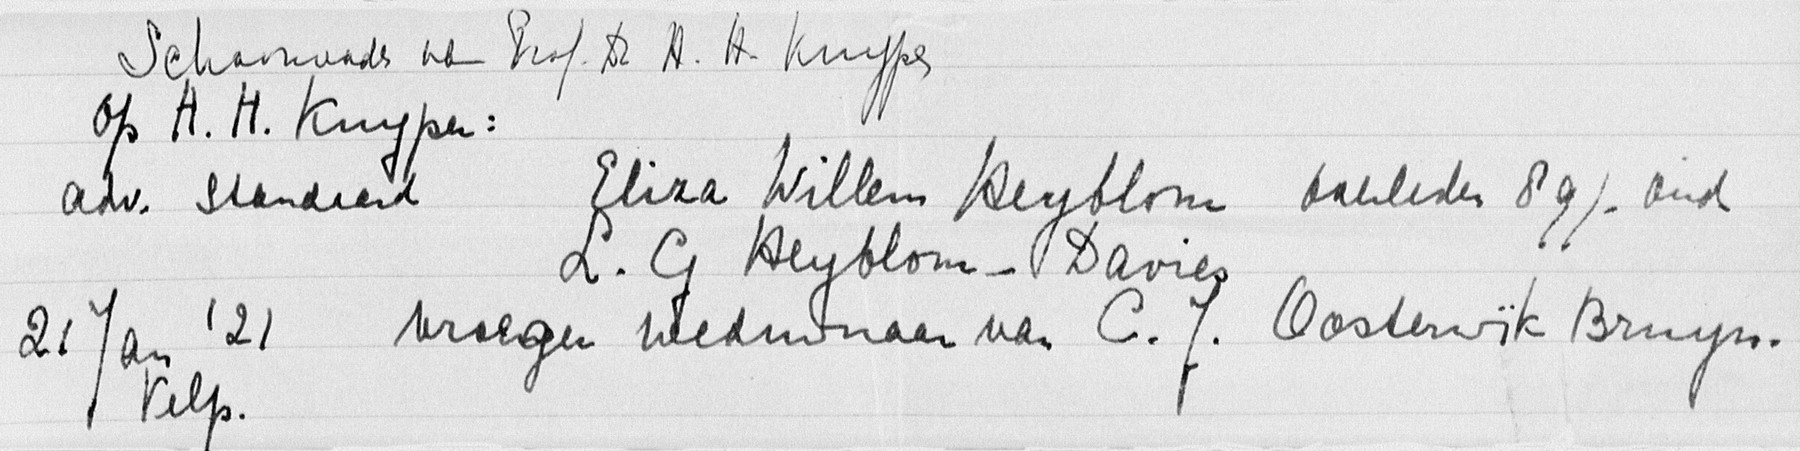 Schoonvader van Prof. Dr H. H. Kuyper
op H. H. Kuyper:
adv. Standaard Eliza Willem Heyblom overleden 89 j. oud
L. G Heyblom-Davies
21 Jan '21 vroeger weduwnaar van C. J. Oosterwijk Bruyn.
Velp.